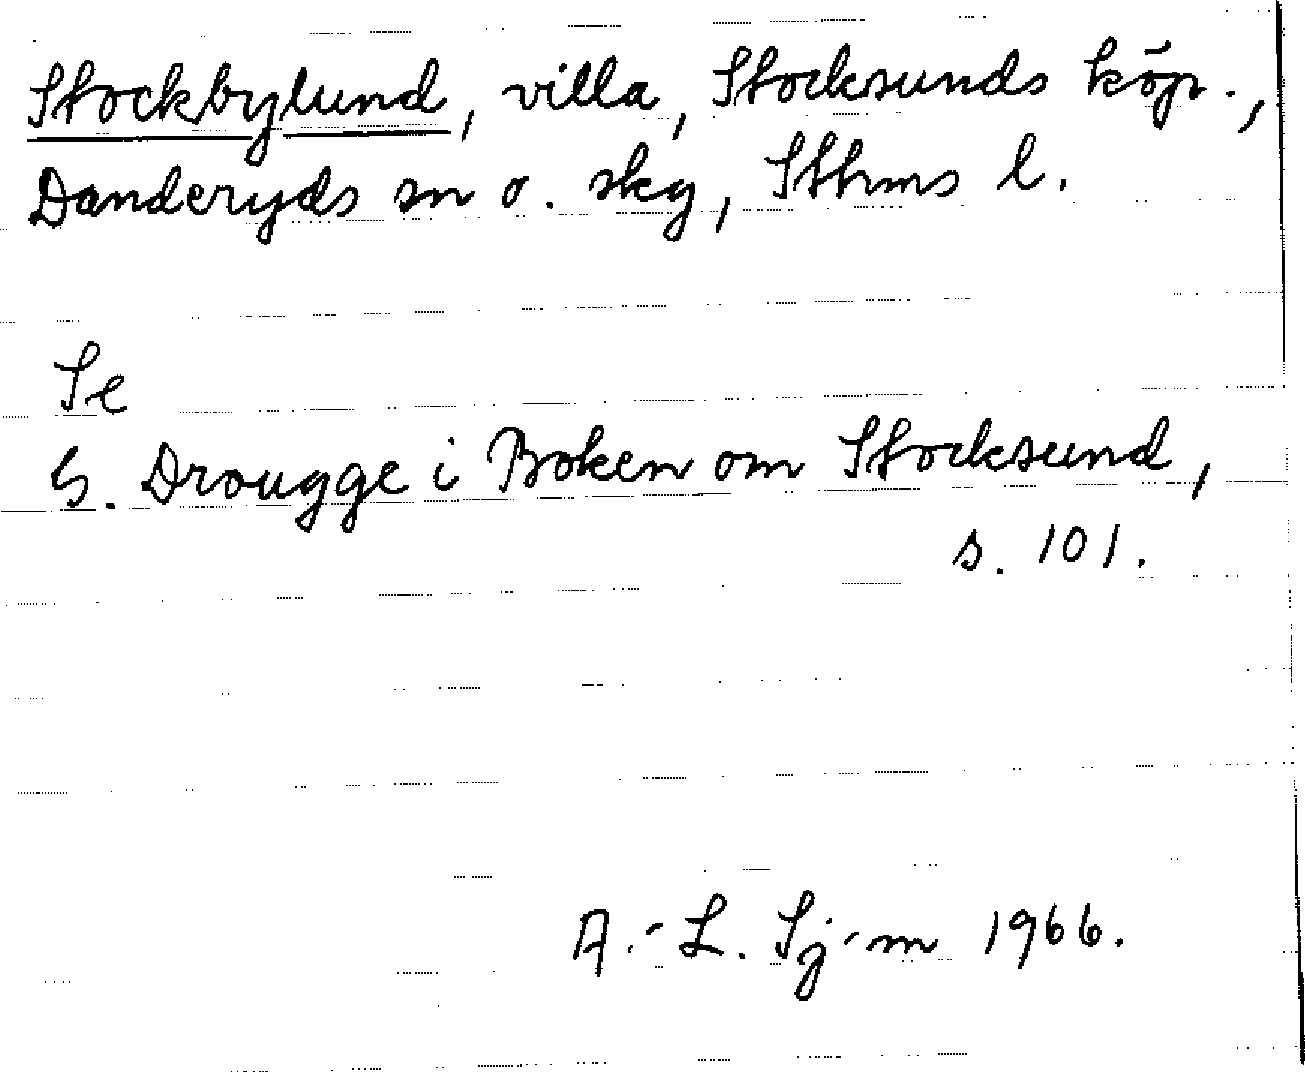 Stockbylund, villa, Stocksunds köp.,
Danderyds sn o. skg, Sthms l.
Se
G. Drougge i Boken om Stocksund,
s. 101.
A.-L. Sj-m 1966.